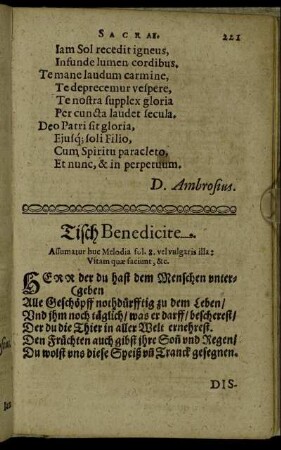 SACRAE. 221
Iam Sol recedit igneus,
Infunde lumen cordibus.
Te mane laudum carmine,
Te deprecemur vespere,
Te nostra supplex gloria
Per cuncta laudet secula.
Deo Patri sit gloria,
Ejusq; soli Filio,
Cum Spiritu paracleto,
Et nunc, & in perpetuum.
D. Ambrosius.
Tisch Benedicite.
Assumatur huc Melodia fol. 8. vel vulgaris illa:
Vitam quæ faciunt, &c.
HERR der du hast dem Menschen unter-
(geben
Alle Geschöpff nothdürfftig zu dem Leben/
Und ihm noch täglich/ was er darff/ bescherest/
Der du die Thier in aller Welt ernehrest.
Den Früchten auch gibst ihre Soñ und Regen/
Du wolst uns diese Speiß uñ Tranck gesegnen.
DIS-